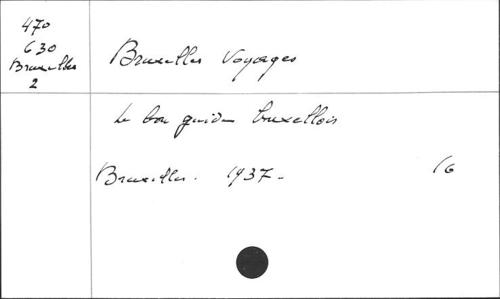 470
630
Bruxelles
2
Bruxelles Voyages
Le bon guide bruxellois
Bruxelles. 1937-
16